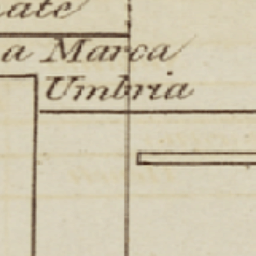 ate
a Marca
Umbria